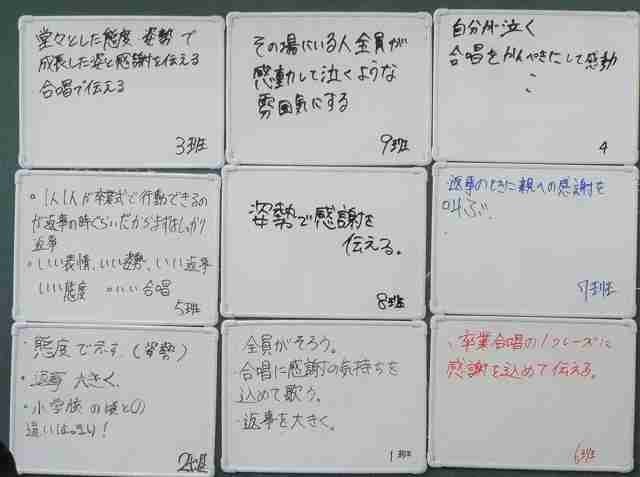 堂々とした態度 姿勢で
成長した姿と感謝を伝える
合唱で伝える
3班
その場にいる人全員が
感動して泣くような
雰囲気にする
9班
自分が泣く
合唱をかんぺきにして感動
4
・1人1人が卒業式で行動できるの
が返事の時ぐらいだからまずはしっかり
返事
・いい表情、いい姿勢、いい返事
いい態度 ・いい合唱
5班
姿勢で感謝を
伝える。
8班
・返事のときに親への感謝を
叫ぶ。
7班
・態度で示す(姿勢)
・返事 大きく
・小学校の頃との
違いはっきり!
2班
・全員がそろう。
・合唱に感謝の気持ちを
込めて歌う。
・返事を大きく。
1班
・卒業合唱の1フレーズに
感謝を込めて伝える。
6班